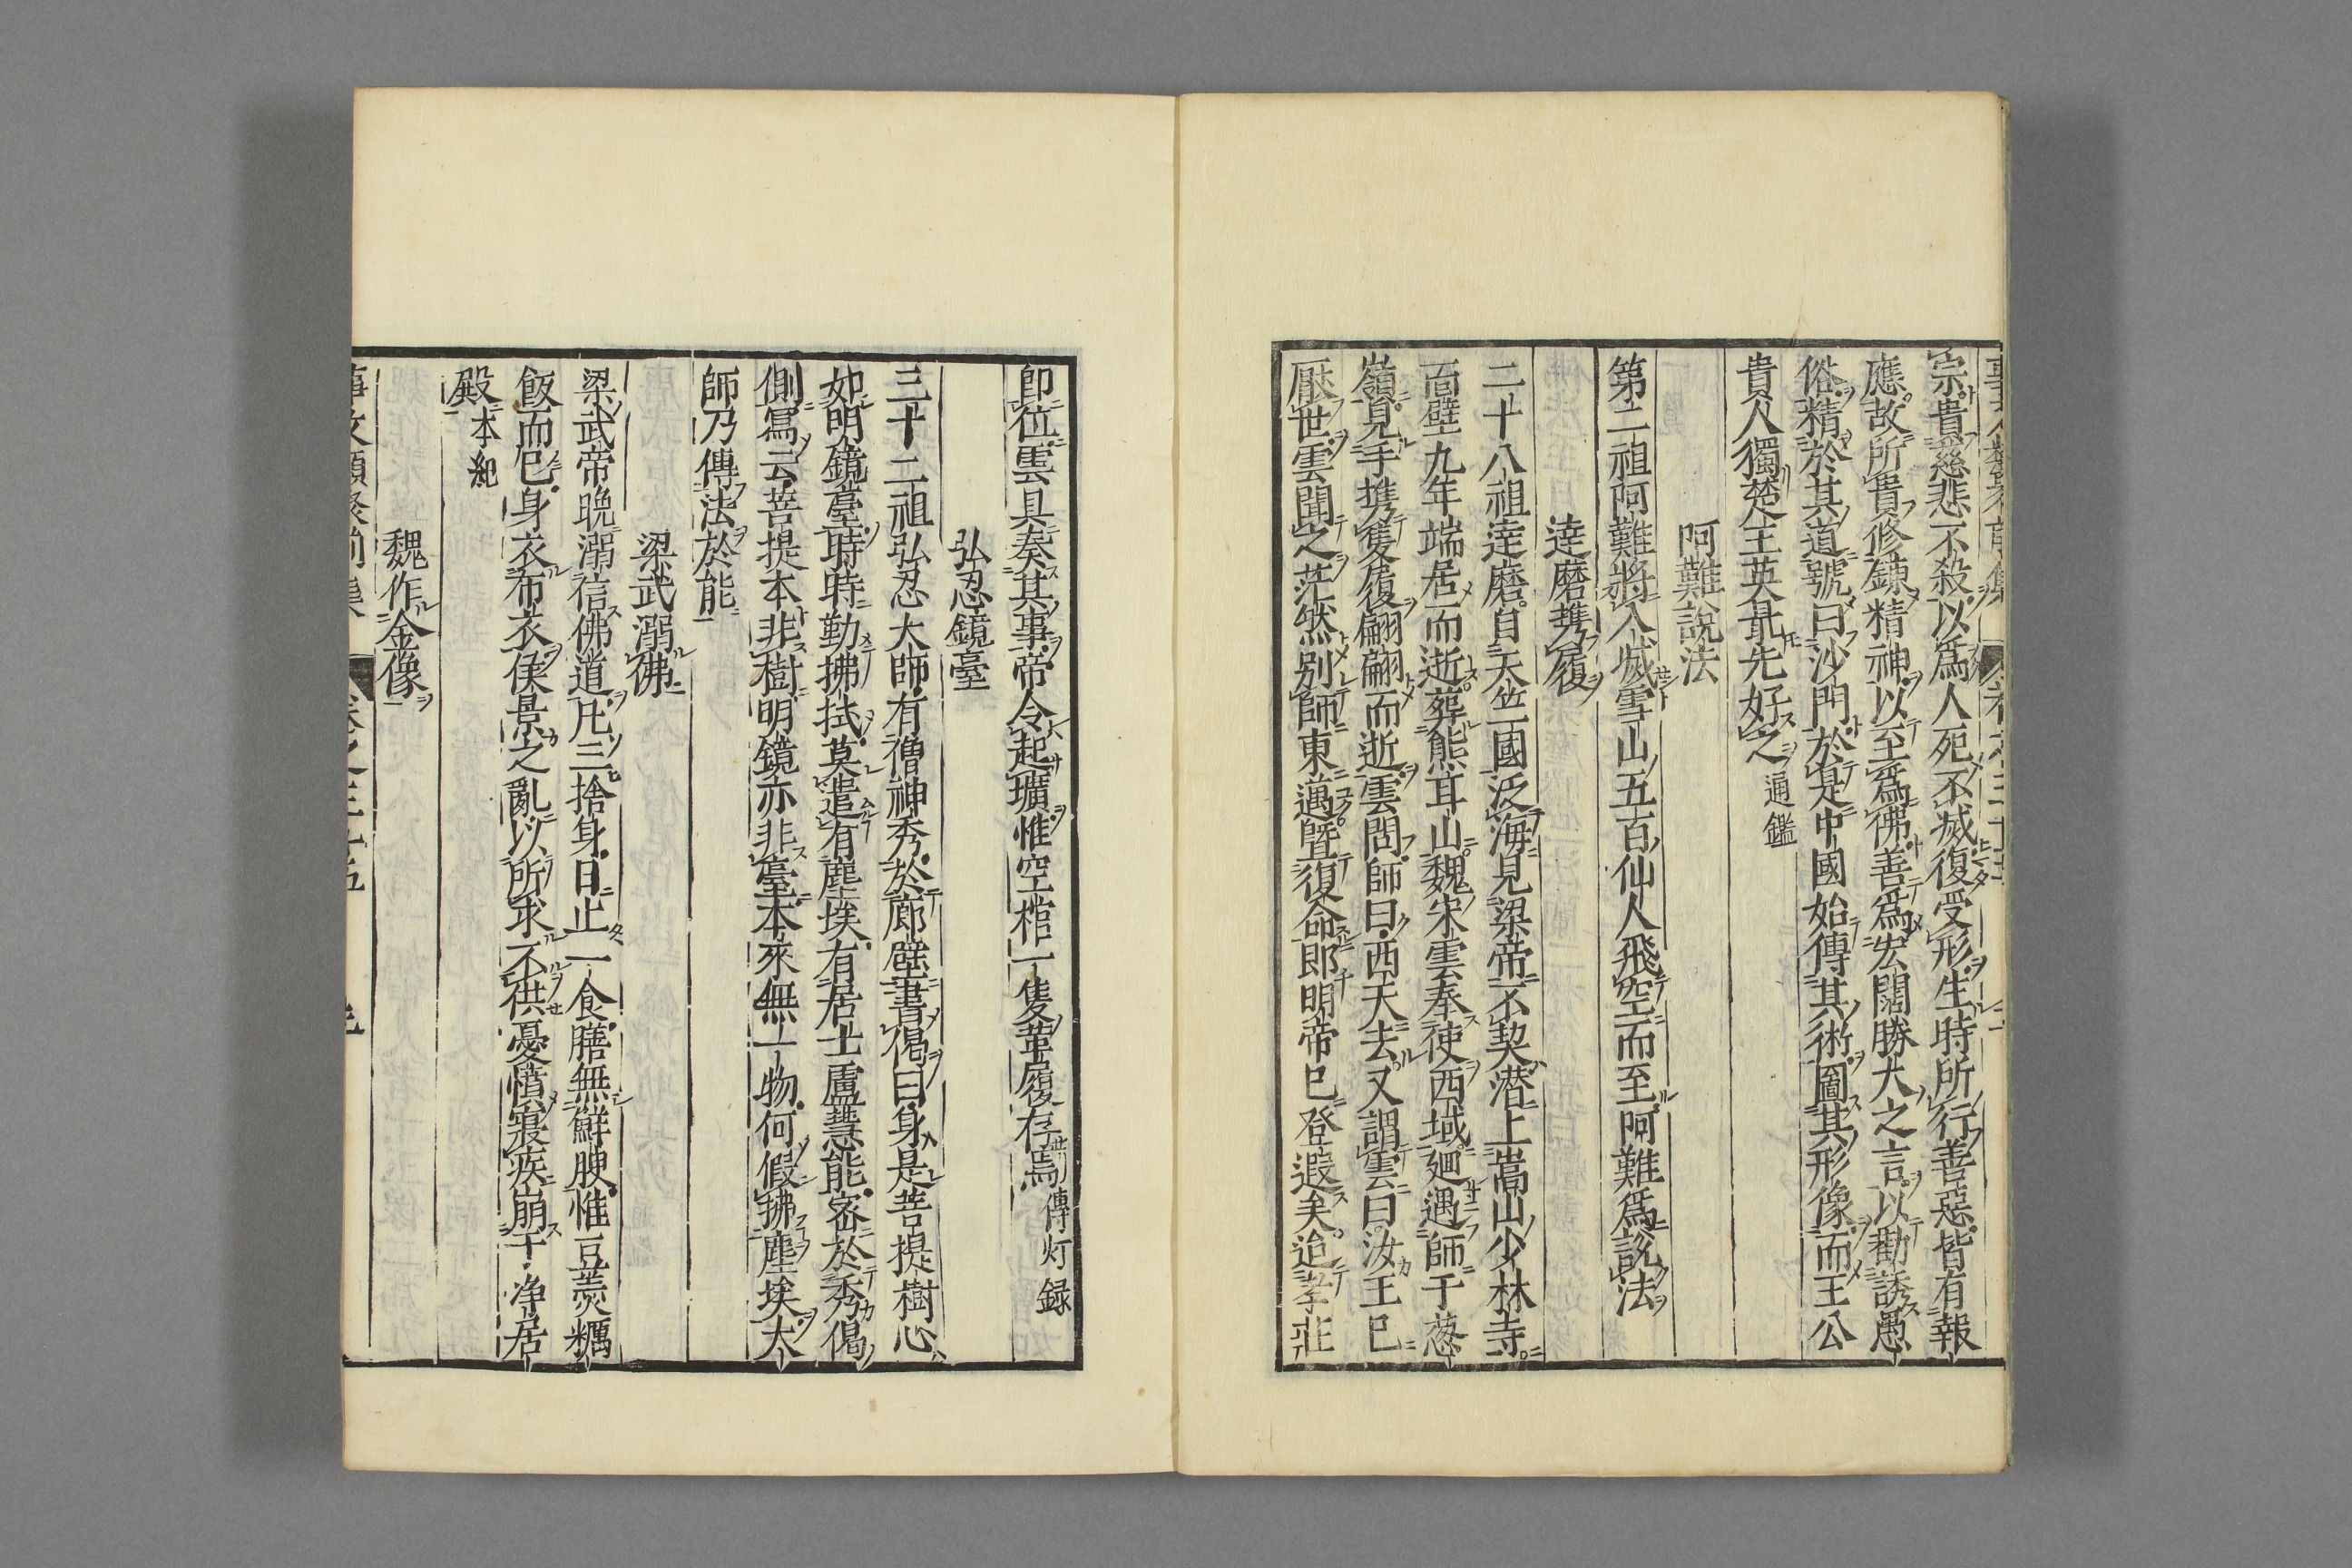 宗貴慈悲不殺以爲人死不滅復受形生時所行善惡皆有報
應故所貴修鍊精神以至爲佛善爲宏闊勝大之言以勸誘愚
俗精於其道號曰沙門於是中國始傳其術圖其形像而王公
貴人獨楚王英最先好之通鑑
阿難說法
第二祖阿難將入滅雪山五百仙人飛空而至阿難爲說法
達磨携履
二十八祖達磨自天竺國泛海見梁帝不契潜上嵩山少林寺
面壁九年端居而逝葬熊耳山魏宋雲奉使西域廻遇師于葱
嶺見手携隻履翩翩而逝雲問師曰西天去又謂雲曰汝王已
厭世雲聞之茫然別師東邁曁復命卽明帝已登遐矣迨孝莊
卽位雲具奏其事帝令起壙惟空棺一隻革履存焉傳灯録
弘忍鏡臺
三十二祖弘忍大師有僧神秀於廊壁書偈曰身是菩提樹心
如明鏡臺時時勤拂拭莫遣有塵埃有居士盧慧能密於秀偈
側寫云菩提本非樹明鏡亦非臺本來無一物何假拂塵埃大
師乃傳法於能
梁武溺佛
梁武帝晩溺信佛道凡三捨身日止一食膳無鮮腴惟豆羹糲
飯而已身衣布衣侯景之亂以所求不供憂憤寢疾崩于净居
殿本紀
魏作金像
事文類聚前集 卷之三十五